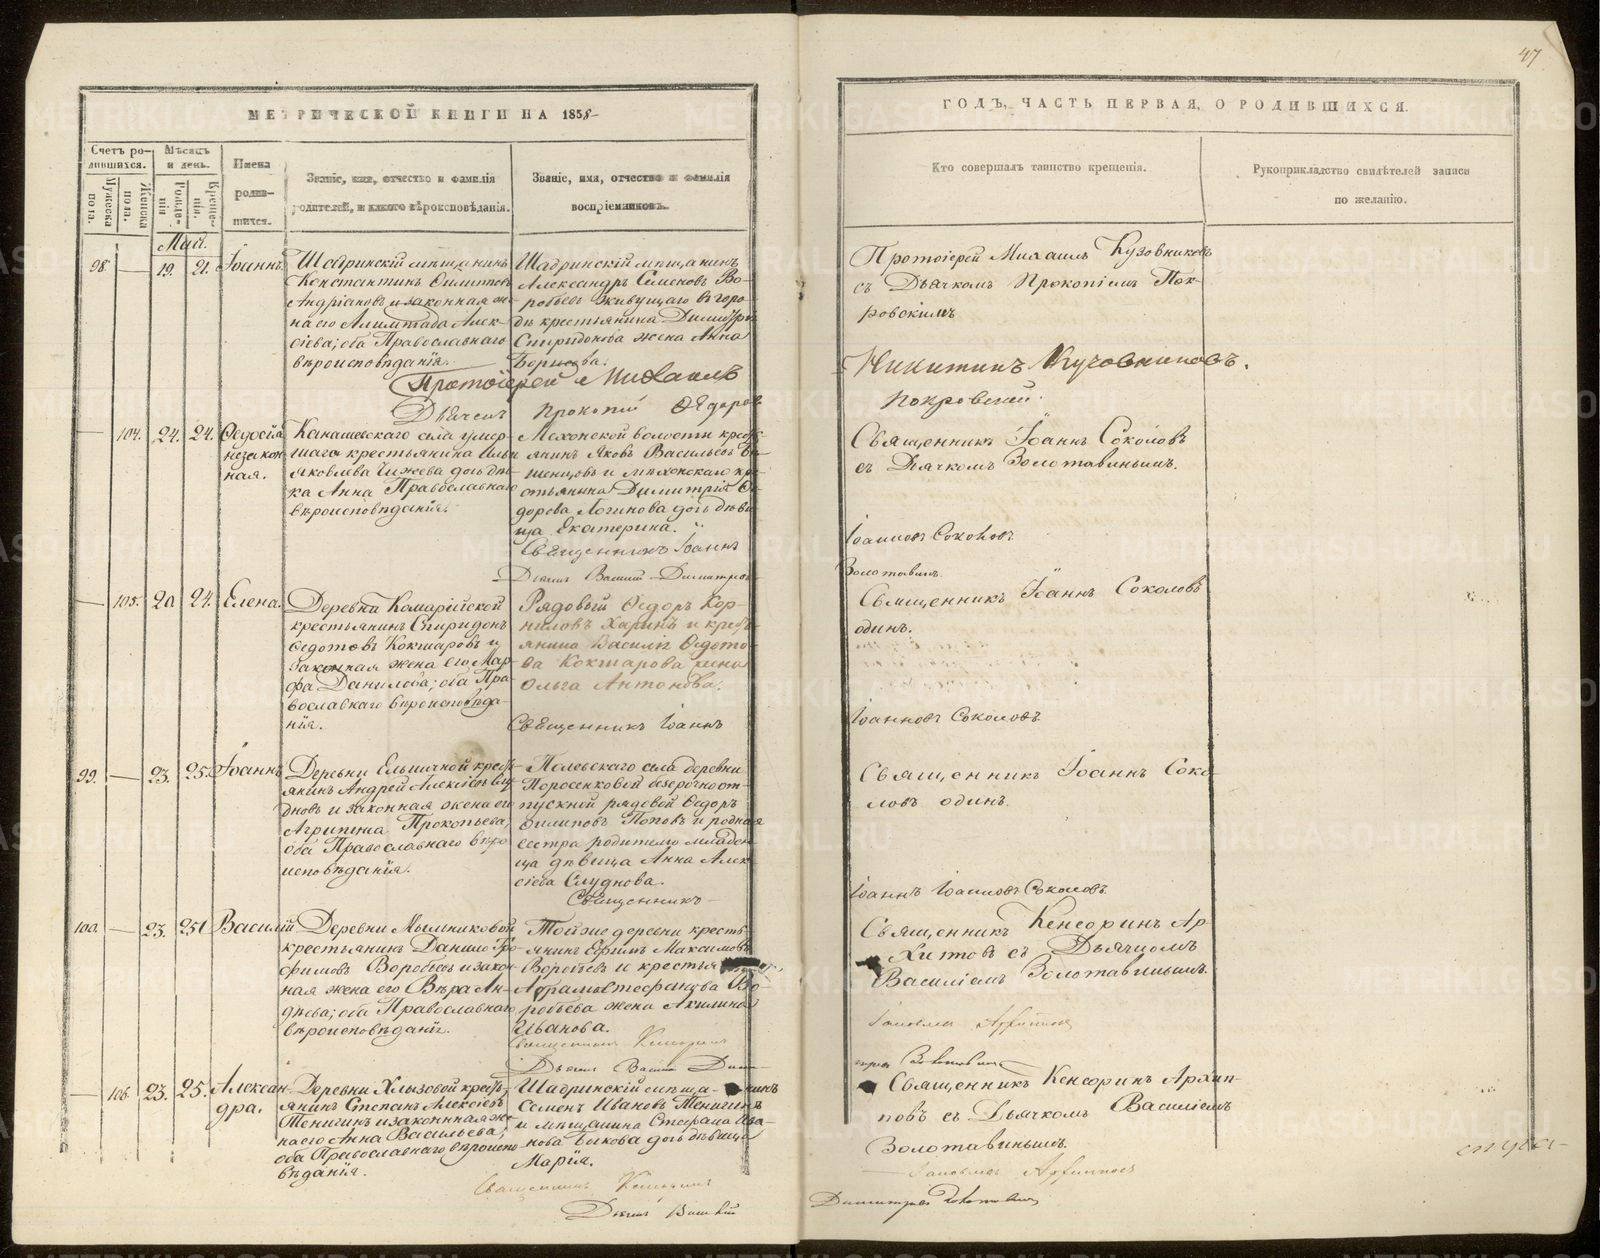 47
МЕТРИЧЕСКОЙ КНИГИ НА 1858
ГОДЪ, ЧАСТЬ ПЕРВАЯ, О РОДИВШИХСЯ.
Счетъ ро-
дившихся.
Мужеска
пола.
Женска
пола.
Мѣсяцъ
и день.
Рожде-
нія
Креще-
нія.
Имена
родив-
шихся.
Званіе, имя, отчество и фамилія
родителей, и какого вѣроисповѣданія.
Званіе, имя, отчество и фамилія
воспріемниковъ.
Кто совершалъ таинство крещенія.
Рукоприкладство свидѣтелей записи
по желанію.
Май.
98.
19.
21.
Іоаннъ
Шадринскій мѣщанинъ
Константинъ
Андріановъ и законная же-
на его Алек-
сіева; оба Православнаго
вѣроисповѣданія.
Шадринскій мѣщанинъ
Александръ Семеновъ Во-
робьевъ живущаго въ горо-
дѣ крестьянина Димитрія
Спиридонова жена Анна
Борисова.
Протоіерей Михаилъ Кузовниковъ
съ Дьячкомъ Прокопіемъ Пок-
ровскимъ
Протоіерей Михаилъ
Никитинъ Кузовниковъ.
Дьячекъ Прокопій Ѳедоровъ
Покровскій.
104.
24.
24.
Ѳедосія
незакон-
ная.
Канашевскаго села умер-
шаго крестьянина Ильи
Яковлева Чижева дочь дѣв-
ка Анна Православнаго
вѣроисповѣданія.
Мехонской волости кресть-
янинъ Яковъ Васильевъ
и мѣхонскаго кре-
стьянина Димитрія Ѳе-
дорова Логинова дочь дѣви-
ца Екатерина.
Священникъ Іоаннъ Соколовъ
съ Дьячкомъ Золотавинымъ.
Священникъ Іоаннъ
Іоанновъ Соколовъ
Дьячекъ Василій Димитріевъ
Золотавинъ.
105.
20
24.
Елена.
Деревни Комарійской
крестьянинъ Спиридонъ
Ѳедотовъ Кокшаровъ и
законная жена его Мар-
фа Данилова; оба Пра-
вославнаго вѣроисповѣда-
нія.
Рядовый Ѳедоръ Кор-
ниловъ Харинъ и кресть-
янина Василія Ѳедото-
ва Кокшарова жена
Ольга Антонова.
Священникъ Іоаннъ Соколовъ
одинъ.
Священникъ Іоаннъ
Іоанновъ Соколовъ
99.
23.
25.
Іоаннъ
Деревни Ельничной кресть-
янинъ Андрей Алексіевъ Слу-
дновъ и законная жена его
Агрипина Прокопьева,
оба Православнаго вѣро-
исповѣданія.
Полевскаго села деревни
Поросенковой безсрочноот-
пускной рядовой Ѳедоръ
Филиповъ Поповъ и родная
сестра родителю младен-
ца дѣвица Анна Алек-
сіева Слуднова.
Священникъ Іоаннъ Соко-
ловъ одинъ.
Священникъ
Іоаннъ Іоанновъ Соколовъ
100.
23.
25.
Василій
Деревни Мыльниковой
крестьянинъ Данило Тро-
фимовъ Воробьевъ и закон-
ная жена его Вѣра Ан-
дѣева; оба Православнаго
вѣроисповѣданія.
Той же деревни кресть-
янинъ Ефимъ Максимовъ
Воробьевъ и крестья
Абрама Стефанова Во-
робьева жена Акилина
Иванова.
Священникъ Кенсоринъ Ар-
хиповъ съ Дьячкомъ
Василіемъ Золотавинымъ.
Священникъ Кенсоринъ
Дьячекъ Василій Дими-
тріевъ Золотавинъ
106.
23.
25.
Алексан-
дра.
Деревни Хлызовой кресть-
янинъ Степанъ Алексіевъ
Тенигинъ и законная же-
на его Анна Васильева;
оба Православнаго вѣроиспо-
вѣданія.
Шадринскій мѣщанинъ
Семенъ Ивановъ Тенигинъ
и мѣщанина Стефана Ива-
нова Быкова дочь дѣвица
Марія.
Священникъ Кенсоринъ Архип-
повъ съ Дьячкомъ Василіемъ
Золотавинымъ.
Священникъ Кенсоринъ
Дьячекъ Василій
Димитріевъ Золотавинъ
METRIKI.GASO-URAL.RU